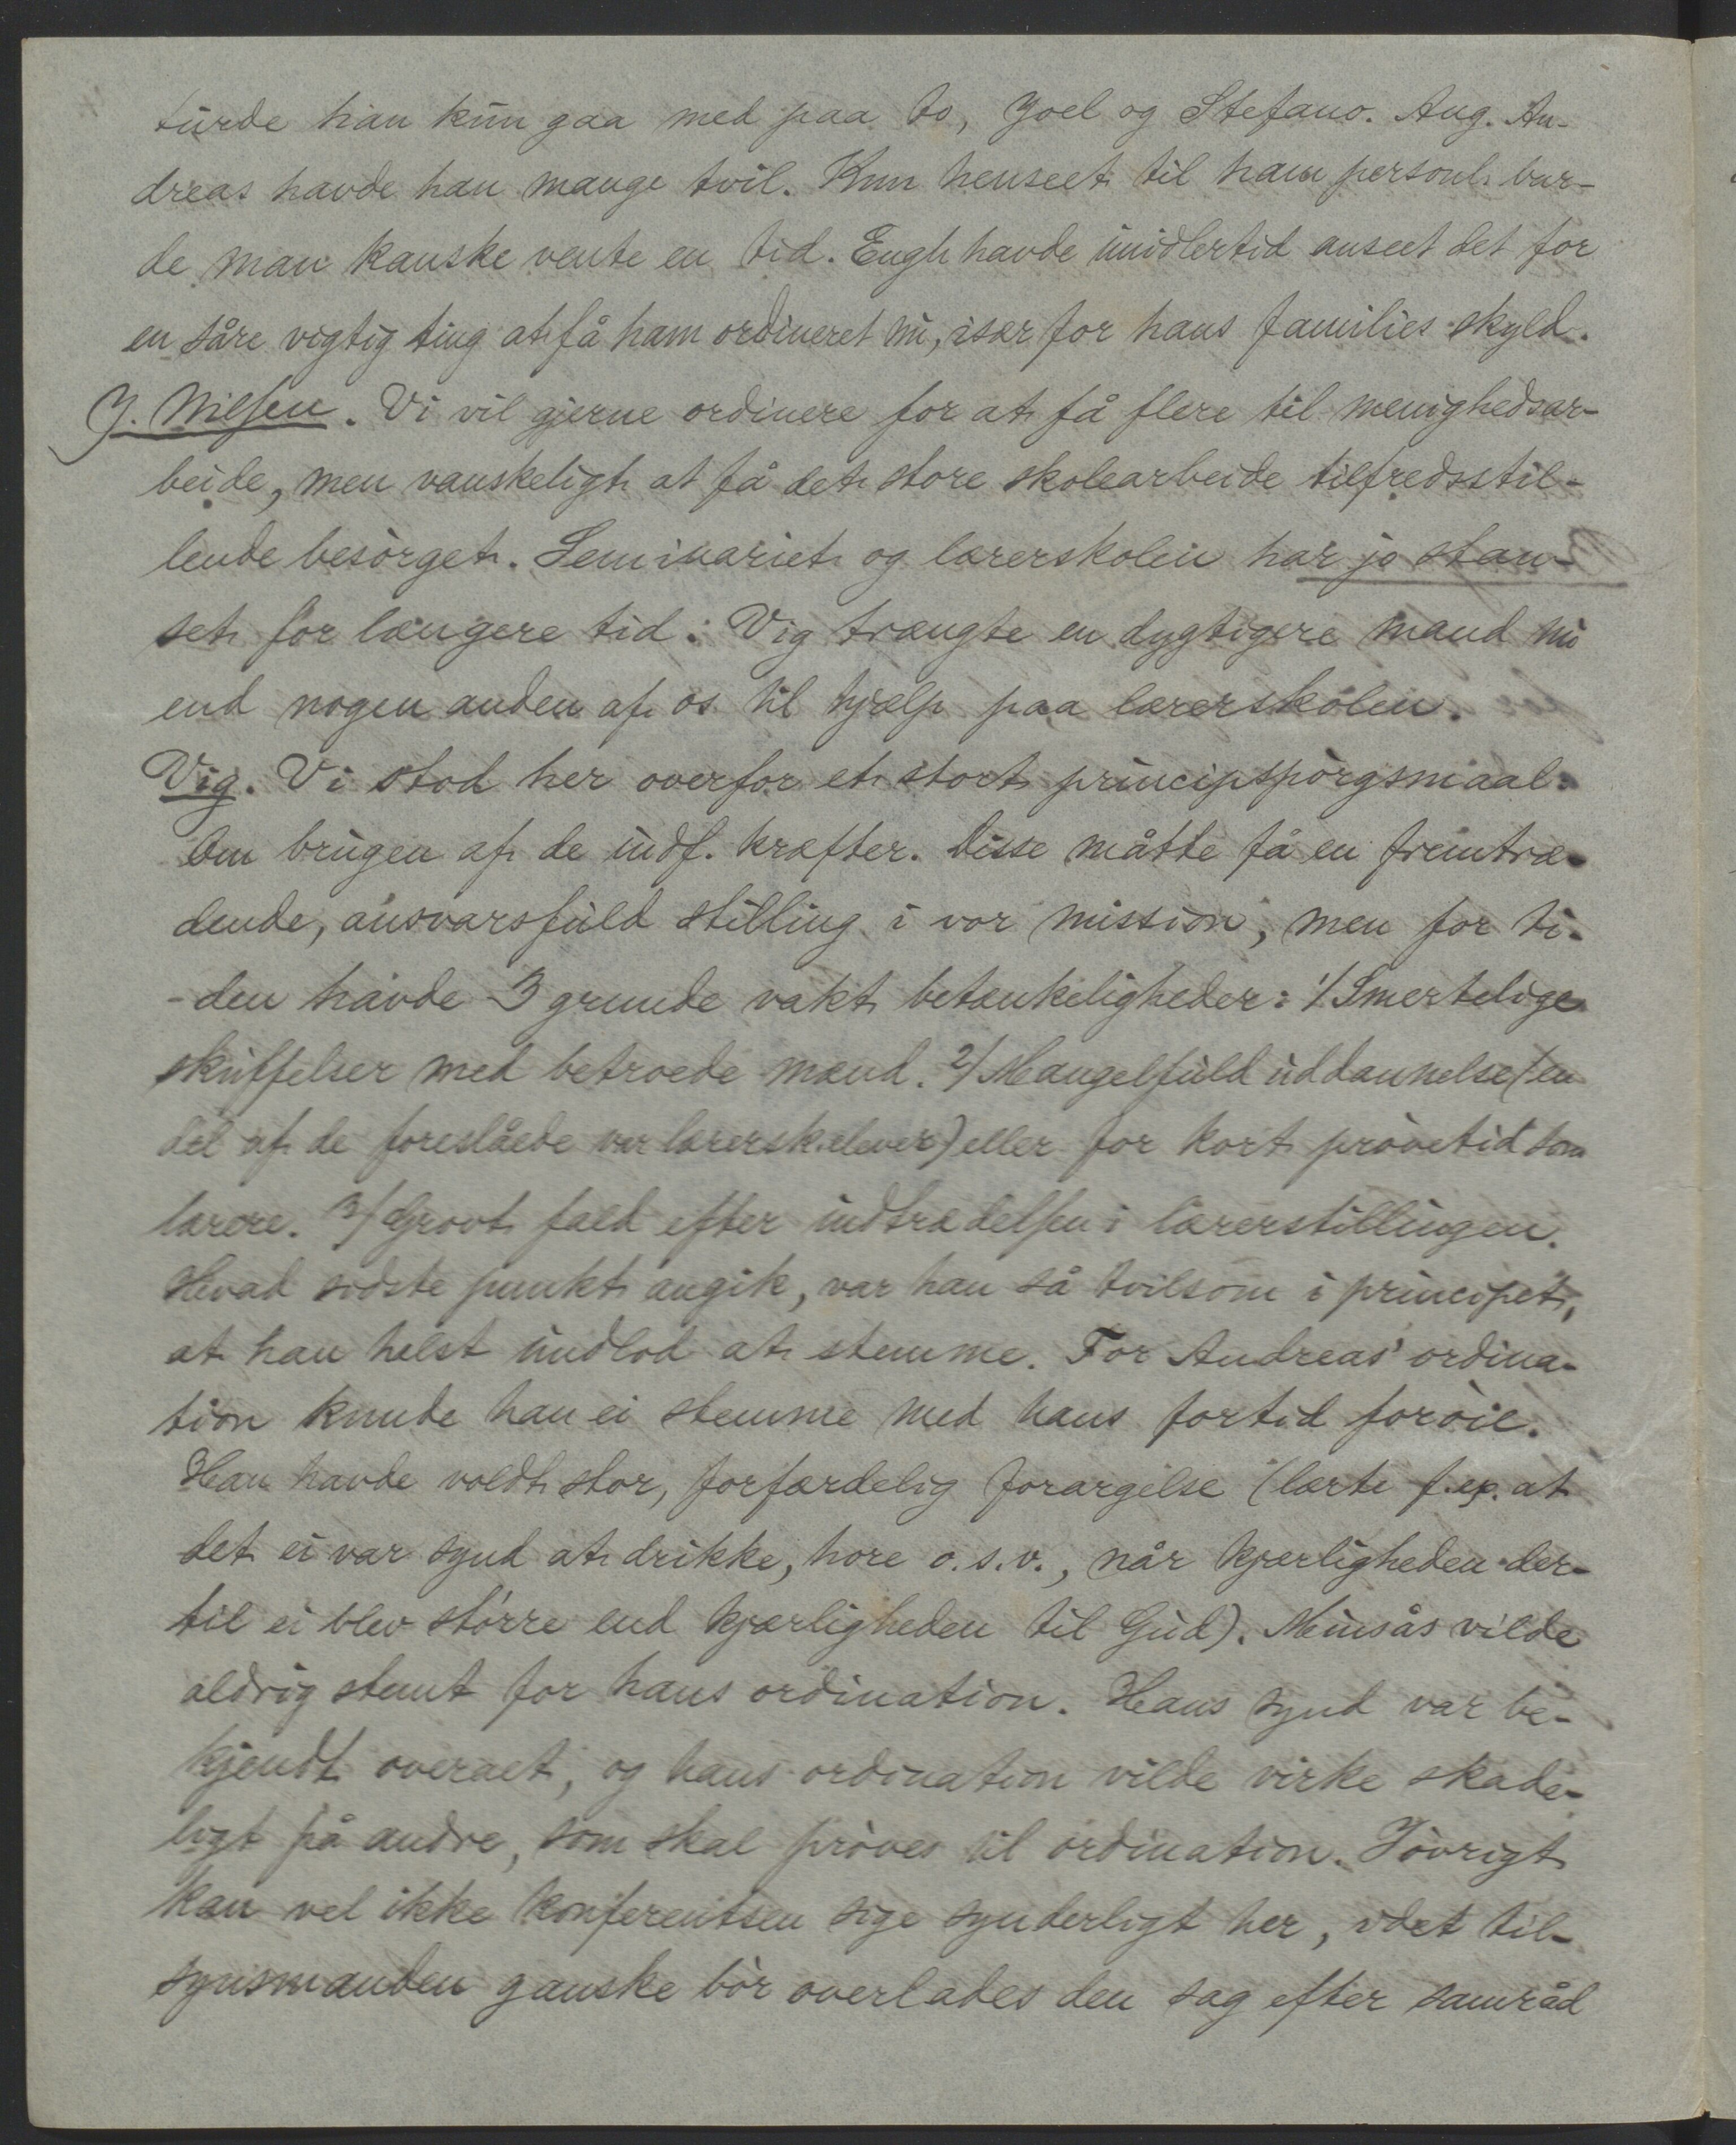 turde han kun gaa med paa to, Joel og Stefano. Ang. An-
dreas havde han mange tvil. Kun henseet til ham personl. bur-
de man kanske vente en tid. Engh havde imidlertid anseet det for
en såre vigtig ting at få ham ordineret nu, især for hans families skyld.
J. Nilsen. Vi vil gjerne ordinere for at få flere til menighedsar-
beide, men vanskeligt at få det store skolearbeide tilfredsstil-
lende besørget. Seminariet og lærerskolen har jo stan-
set for længere tid. Vig trængte en dygtigere mand nu
end nogen anden af os til hjælp paa lærerskolen.
Vig. Vi stod her overfor et stort principspørgsmaal:
Om brugen af de indf. kræfter. Disse måtte få en fremtræ-
dende, ansvarsfuld stilling i vor mission, men for ti-
-den havde 3 grunde vakt betænkeligheder: 1/ Smertelige
skuffelser med betroede mænd. 2/ Mangelfuld uddannelse (en
del af de foreslåede var lærersk.elever) eller for kort prøvetid som
lærere. 3/ Grovt fald efter indtrædelsen i lærerstillingen.
Hvad sidste punkt angik, var han så tvilsom i principet,
at han helst undlod at stemme. For Andreas' ordina-
tion kunde han ei stemme med hans fortid forøie.
Han havde voldt stor, forfærdelig forargelse (lærte f.ex. at
det ei var synd at drikke, hore o.s.v., når kjærligheden der-
til ei blev større end kjærligheden til Gud). Minsås vilde
aldrig stemt for hans ordination. Hans synd var be-
kjendt overalt, og hans ordination vilde virke skade-
ligt på andre, som skal prøves til ordination. Iøvrigt
kan vel ikke konferentsen sige synderligt her, idet til-
synsmanden ganske bør overlades den sag efter samråd